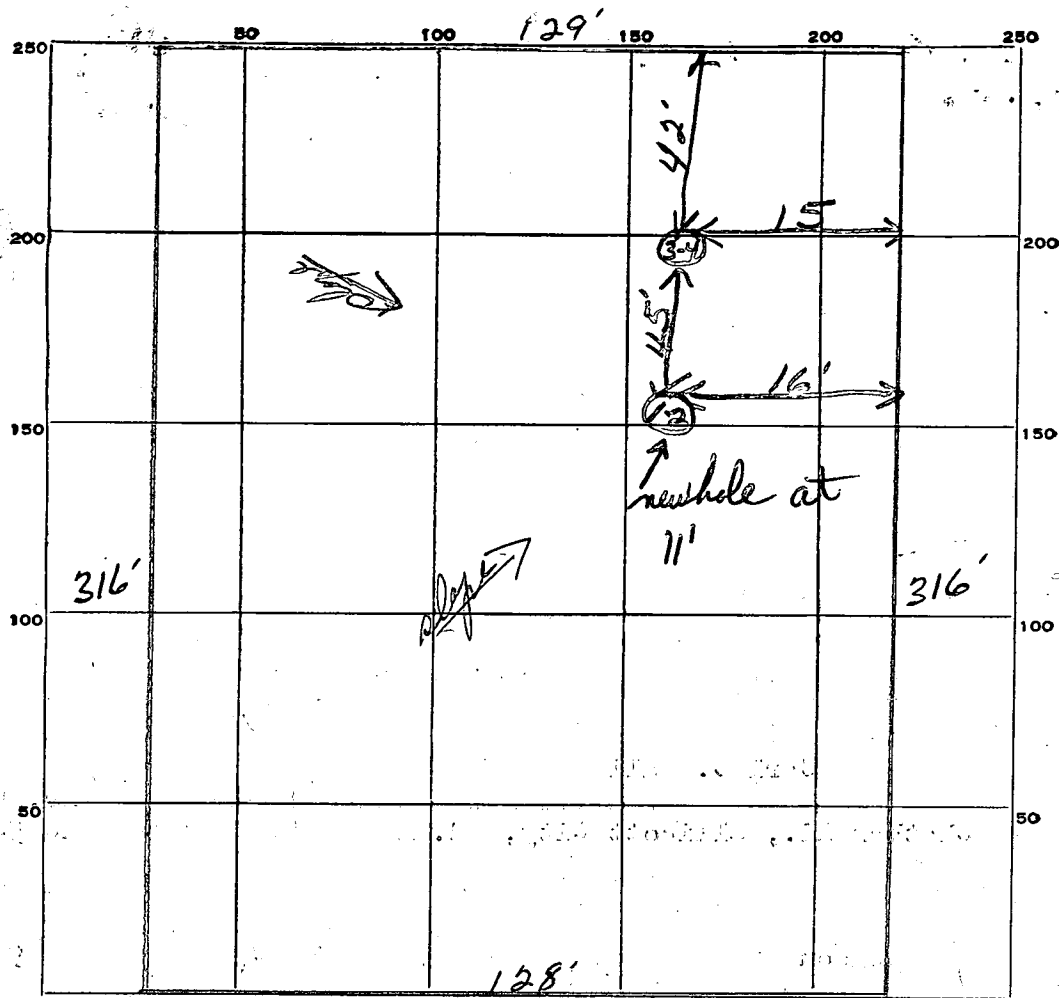 129'
50 100 150 200 250
250
42'
15
200 200
3-4
45'
16'
1-2
150 150
newhole at
11'
slope
316' 316'
100 100
50 50
128'